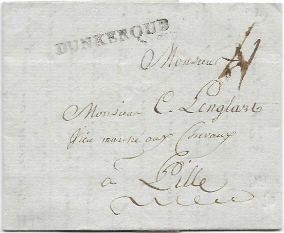 DUNKERQUE
Monsieur
Monsieur C. Lenglart
Vieu marché aux Chevaux
à Lille